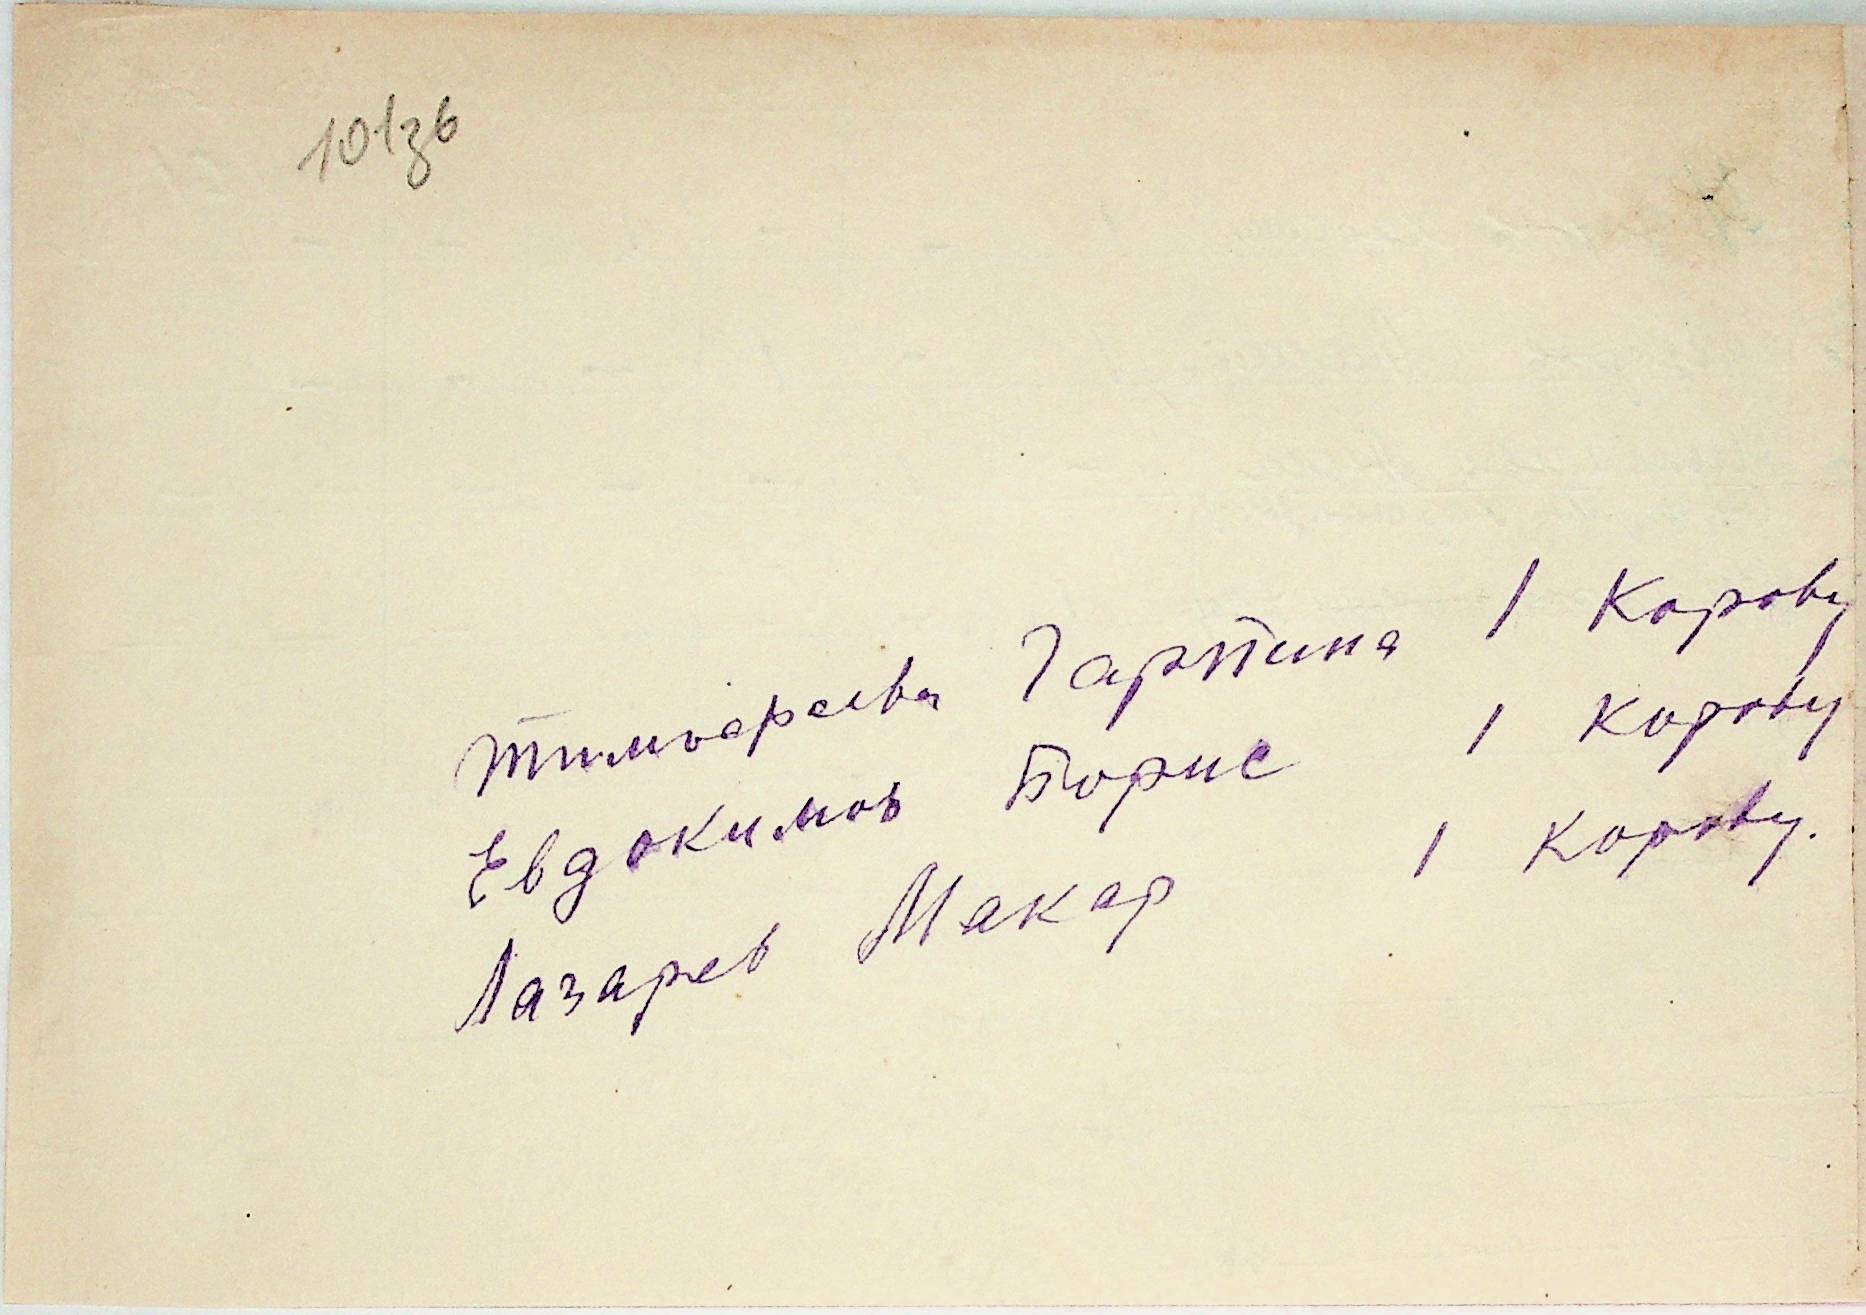 101зв
Тимофеева Гарпина 1 Корову
Евдокимов Борис 1 Корову
Лазарев Макар 1 Корову.